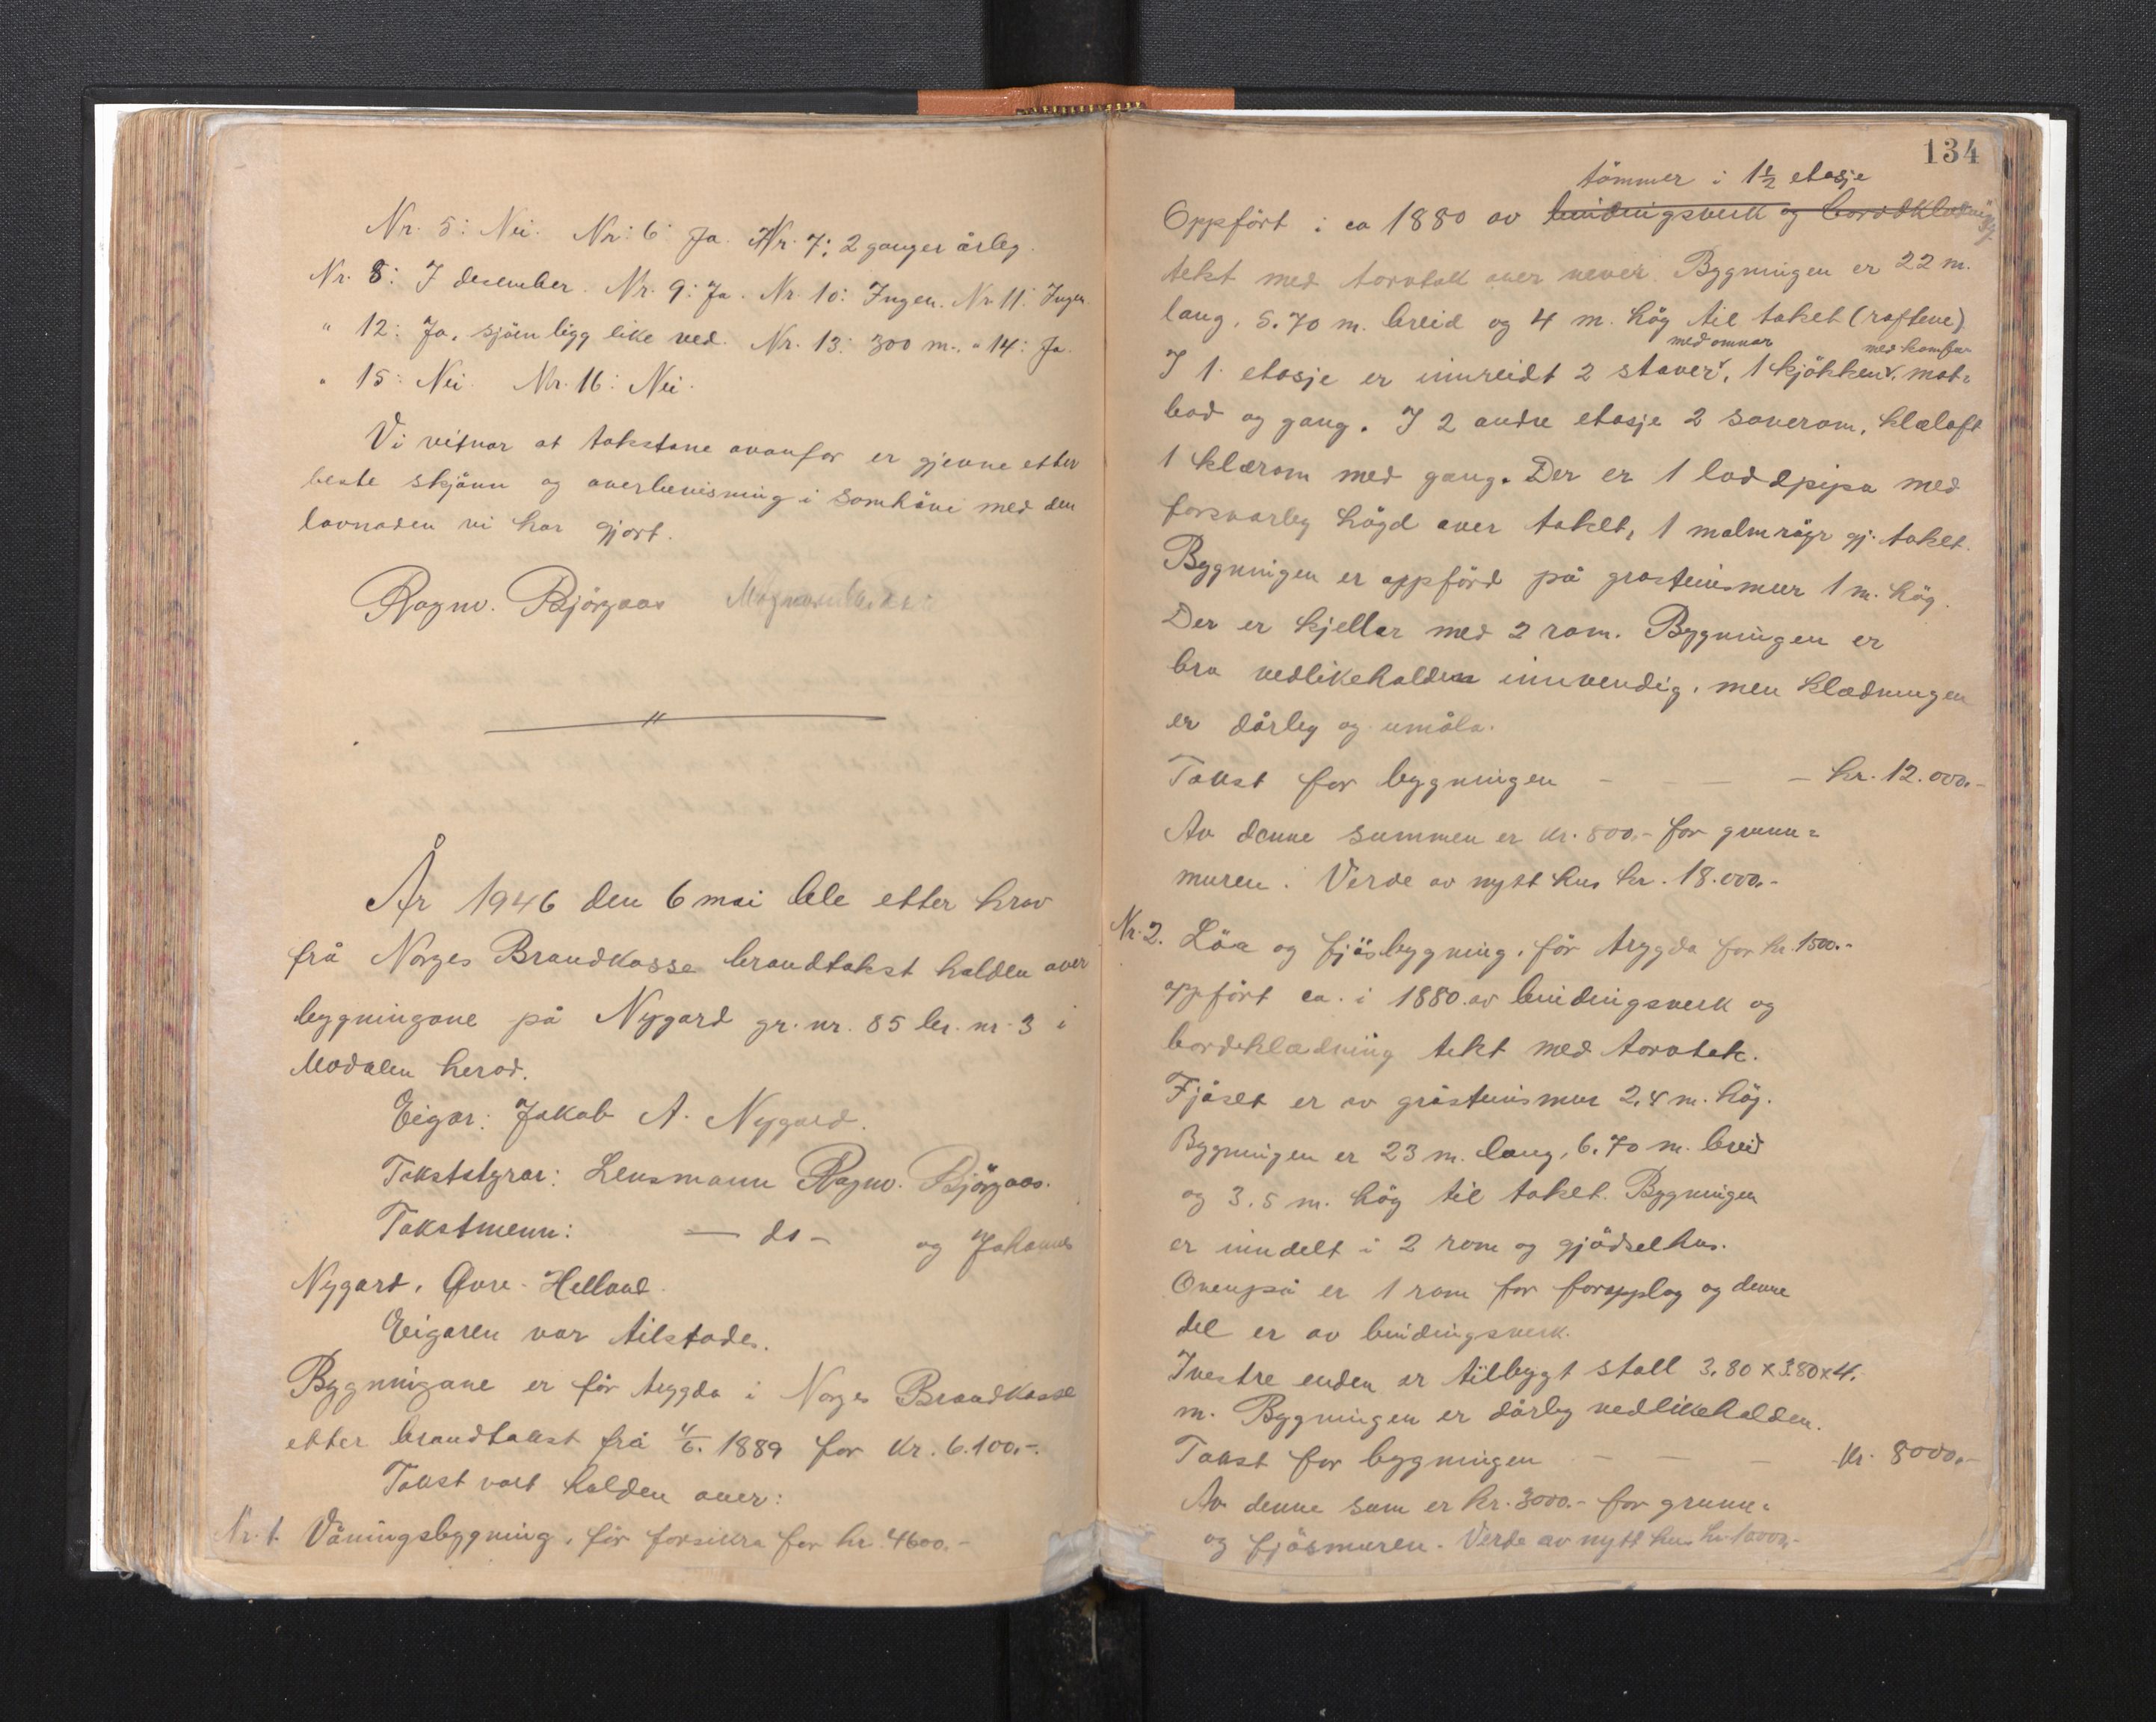 Nr. 5: Nei. Nr: 6: Ja. Nr. 7: 2 ganger årleg.
Nr. 8: I desember. Nr. 9: Ja. Nr. 10: Ingen. Nr 11: Ingen.
" 12: Ja, sjöen ligg like ved. Nr. 13: 300 m. " 14: Ja.
" 15: Nei. Nr. 16: Nei.
Vi vitnar at takstane ovanfor er gjevne etter
beste skjönn og overbevisning i samhöve med den
lovnaden vi har gjort.
Ragnv. Björgaas
År 1946 den 6 mai ble etter krav
frå Norges Brandkasse brandtakst halden over
bygningane på Nygard gr. nr. 85 br. nr. 3 i
Modalen herad.
Eigar: Jakob A. Nygard.
Takststyrar: Lensmann Ragnv. Björgaas.
Takstmenn: — do – og Johannes
Nygard, Øvre-Helland.
Eigaren var tilstade.
Bygningane er för trygda i Norges Brandkasse
etter brandtakst frå 4/6. 1889 for kr. 6.100.-.
Takst vart halden over:
Nr. 1. Våningsbygning, för forsikra for kr. 4600.-
134
tömmer i 1 1/2 etasje
Oppfört i ca 1880 av bindingsverk og bordklædning
tekt med torvtak over never. Bygningen er 22 m.
lang, 5.70 m. breid og 4 m. hög til taket (raftene)
med omnar med komfur
I 1. etasje er innreidt 2 stover, 1 kjökken, mat-
bod og gang. I 2 andre etasje 2 soverom, klæloft
1 klærom med gang. Der er 1 loddpipa med
forsvarleg högd over taket, 1 malmrøyr gj. taket.
Bygningen er oppförd på grasteinsmur 1 m. hög.
Der er kjellar med 2 rom. Bygningen er
bra vedlikehalden innvendig, men klædningen
er dårleg og umåla.
Takst for bygningen – – – kr. 12.000.-
Av denne summen er kr. 800.- for grunn-
muren. Verde av nytt hus kr. 18.000.-
Nr. 2. Löa og fjösbygning, för trygda for kr. 1500.-
oppfört ca. i 1880 av bindingsverk og
bordklædning tekt med torvtak.
Fjöset er av gråsteinsmur 2,4 m. hög.
Bygningen er 23 m. lang, 6.70 m. breid
og 3.5 m. hög til taket. Bygningen
er inndelt i 2 rom og gjödselhus.
Ovenpå er 1 rom for foropplag og denne
del er av bindingsverk.
I vestre enden er tilbygt stall 3,80 x 3.80 x 4.
m. Bygningen er dårleg vedlikehalden.
Takst for bygningen – – – kr. 8000.-
Av denne sum er kr. 3000.- for grunn-
og fjösmuren. Verde av nytt hus kr. 10000.-